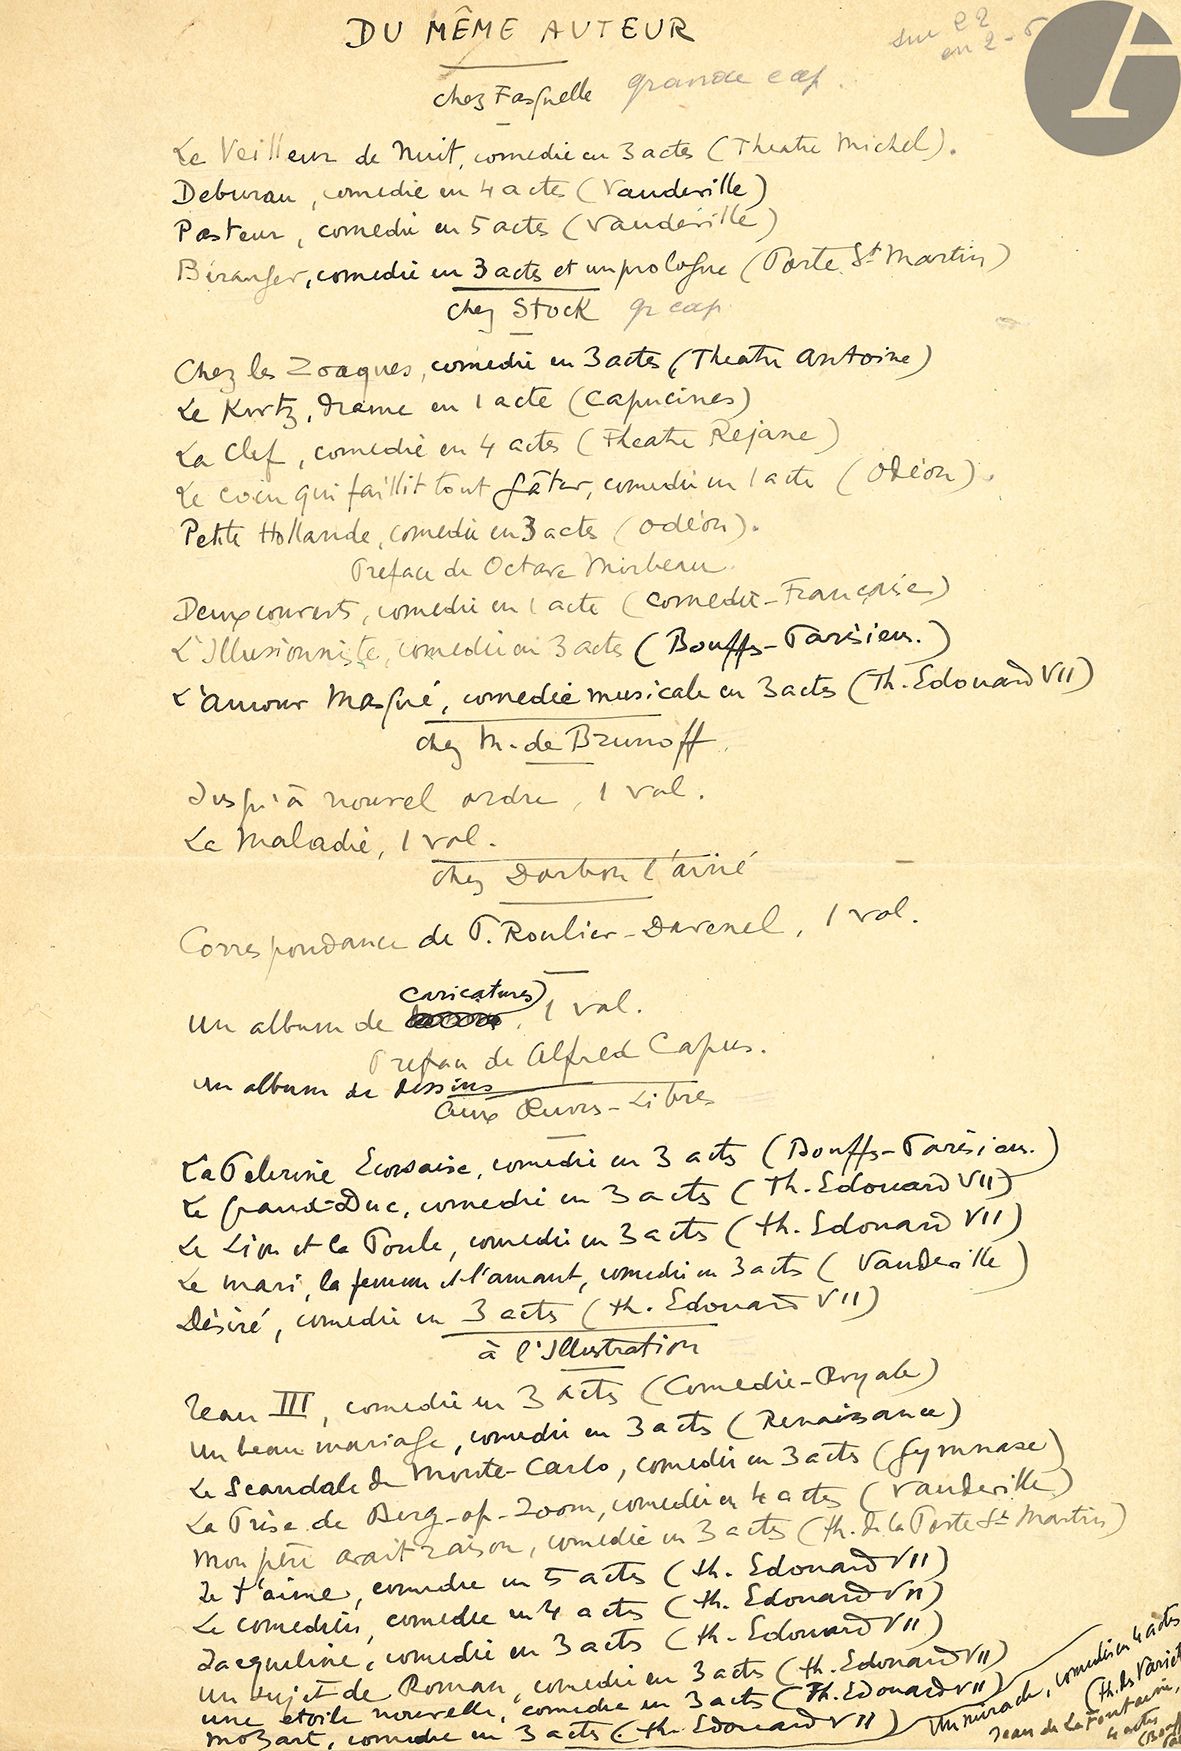 DU MÊME AUTEUR
sur 22
en 2 -
chez Fasquelle grande cap.
Le Veilleur de Nuit, comedie en 3 actes (Theatre Michel).
Deburau, comedie en 4 actes (Vaudeville)
Pasteur, comedie en 5 actes (Vaudeville)
Béranger, comedie en 3 actes et un prologue (Porte St Martin)
chez Stock gr cap
Chez les Zoaques, comedie en 3 actes (Theatre Antoine)
Le Kwtz, drame en 1 acte (Capucines)
La Clef, comedie en 4 actes (Theatre Rejane)
Le coin qui faillit tout gâter, comedie en 1 acte (Odéon).
Petite Hollande, comedie en 3 actes (Odéon).
Preface de Octave Mirbeau.
Deux couverts, comedie en 1 acte (Comedie-Française)
L'Illusionniste, comedie en 3 actes (Bouffes-Parisiens.)
L'amour Masqué, comedie musicale en 3 actes (Th. Edouard VII)
chez M. de Brunoff
Jusqu'à nouvel ordre, 1 vol.
La Maladie, 1 vol.
chez Dorbon l'ainé
Correspondance de P. Roulier-Davenel, 1 vol.
caricatures
Un album de , 1 vol.
Preface de Alfred Capus.
un album de dessins
aux Œuvres-Libres
La Pelerine Ecossaise, comedie en 3 actes (Bouffes-Parisiens.)
Le Grand-Duc, comedie en 3 actes (Th. Edouard VII)
Le Lion et la Poule, comedie en 3 actes (th. Edouard VII)
Le mari, la femme et l'amant, comedie en 3 actes (Vaudeville)
Désiré, comedie en 3 actes (th. Edouard VII)
à l'Illustration
Jean III, comedie en 3 actes (Comedie-Royale)
Un beau mariage, comedie en 3 actes (Renaissance)
Le Scandale de Monte-Carlo, comedie en 3 actes (Gymnase)
La Prise de Berg-op-Zoom, comedie en 4 actes (Vaudeville)
Mon père avait raison, comedie en 3 actes (th. de la Porte St Martin)
Je t'aime, comedie en 5 actes (th. Edouard VII)
Le comedien, comedie en 4 actes (th. Edouard VII)
Jacqueline, comedie en 3 actes (th. Edouard VII)
Un sujet de Roman, comedie en 3 actes (th. Edouard VII)
une etoile nouvelle, comedie en 3 actes (Th. Edouard VII)
Mozart, comedie en 3 actes (th. Edouard VII)
Un miracle, comedie en 4 actes
(th. des Variet
Jean de La Fontaine,
4 actes
(Bouff